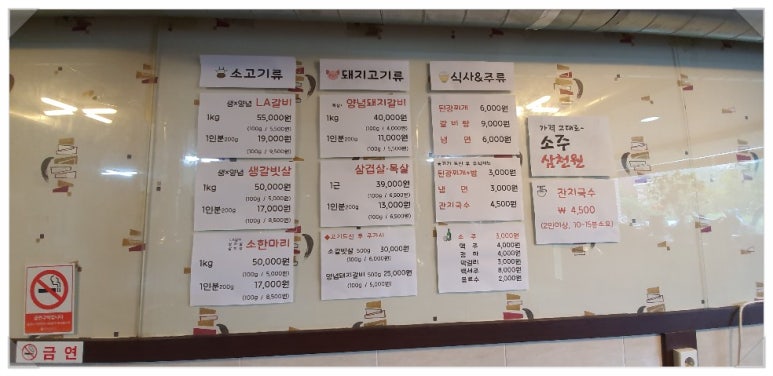 소고기류
생*양념 LA갈비
1kg 55,000원
(100g / 5,500원)
1인분200g 19,000원
(100g / 9,500원)
생*양념 생갈빗살
1kg 50,000원
(100g / 5,000원)
1인분200g 17,000원
(100g / 8,500원)
소한마리
1kg 50,000원
(100g / 5,000원)
1인분200g 17,000원
(100g / 8,500원)
돼지고기류
양념돼지갈비
1kg 40,000원
(100g / 4,000원)
1인분200g 11,000원
(100g / 5,500원)
삼겹살·목살
1근 39,000원
(100g / 6,500원)
1인분200g 13,000원
(100g / 6,500원)
◆고기드신 후 추가시
소갈빗살 500g 30,000원
(100g / 6,000원)
양념돼지갈비 500g 25,000원
(100g / 5,000원)
식사&주류
된장찌개 6,000원
갈비탕 9,000원
냉면 6,000원
된장찌개+밥 3,000원
냉면 3,000원
잔치국수 4,500원
소주 3,000원
맥주 4,000원
청하 4,000원
막걸리 3,000원
백세주 8,000원
음료수 2,000원
가격 그대로~
소주
삼천원
잔치국수
₩ 4,500
(2인이상, 10~15분소요)
금연